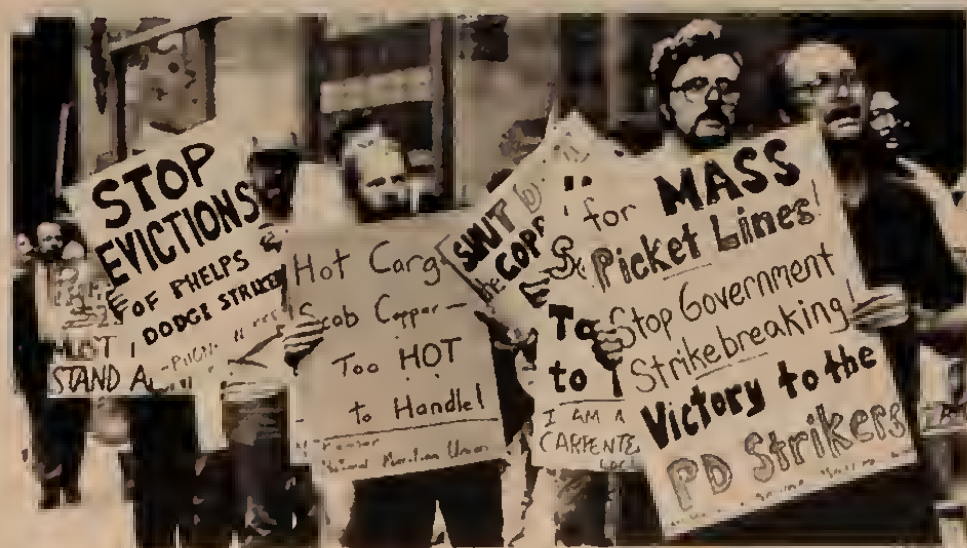 STOP
EVICTIONS
OF PHELPS
DODGE STRIKERS
STAND
Hot Cargo
Scab Copper —
Too HOT
to Handle!
National Maritime Union
SHUT
the
for MASS
Picket Lines!
Stop Government
Strikebreaking!
Victory to the
PD Strikers
To
to
I AM A
CARPENTE